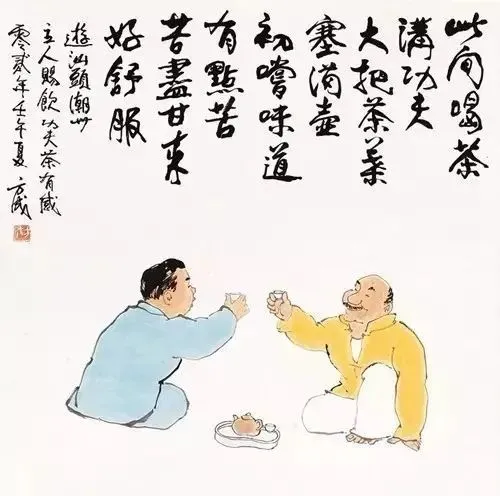 此间喝茶
講功夫
大把茶葉
塞滿壶
初嚐味道
有點苦
苦盡甘来
好舒服
遊汕頭潮州
主人賜飲功夫茶有感
零貳年壬午夏 方成